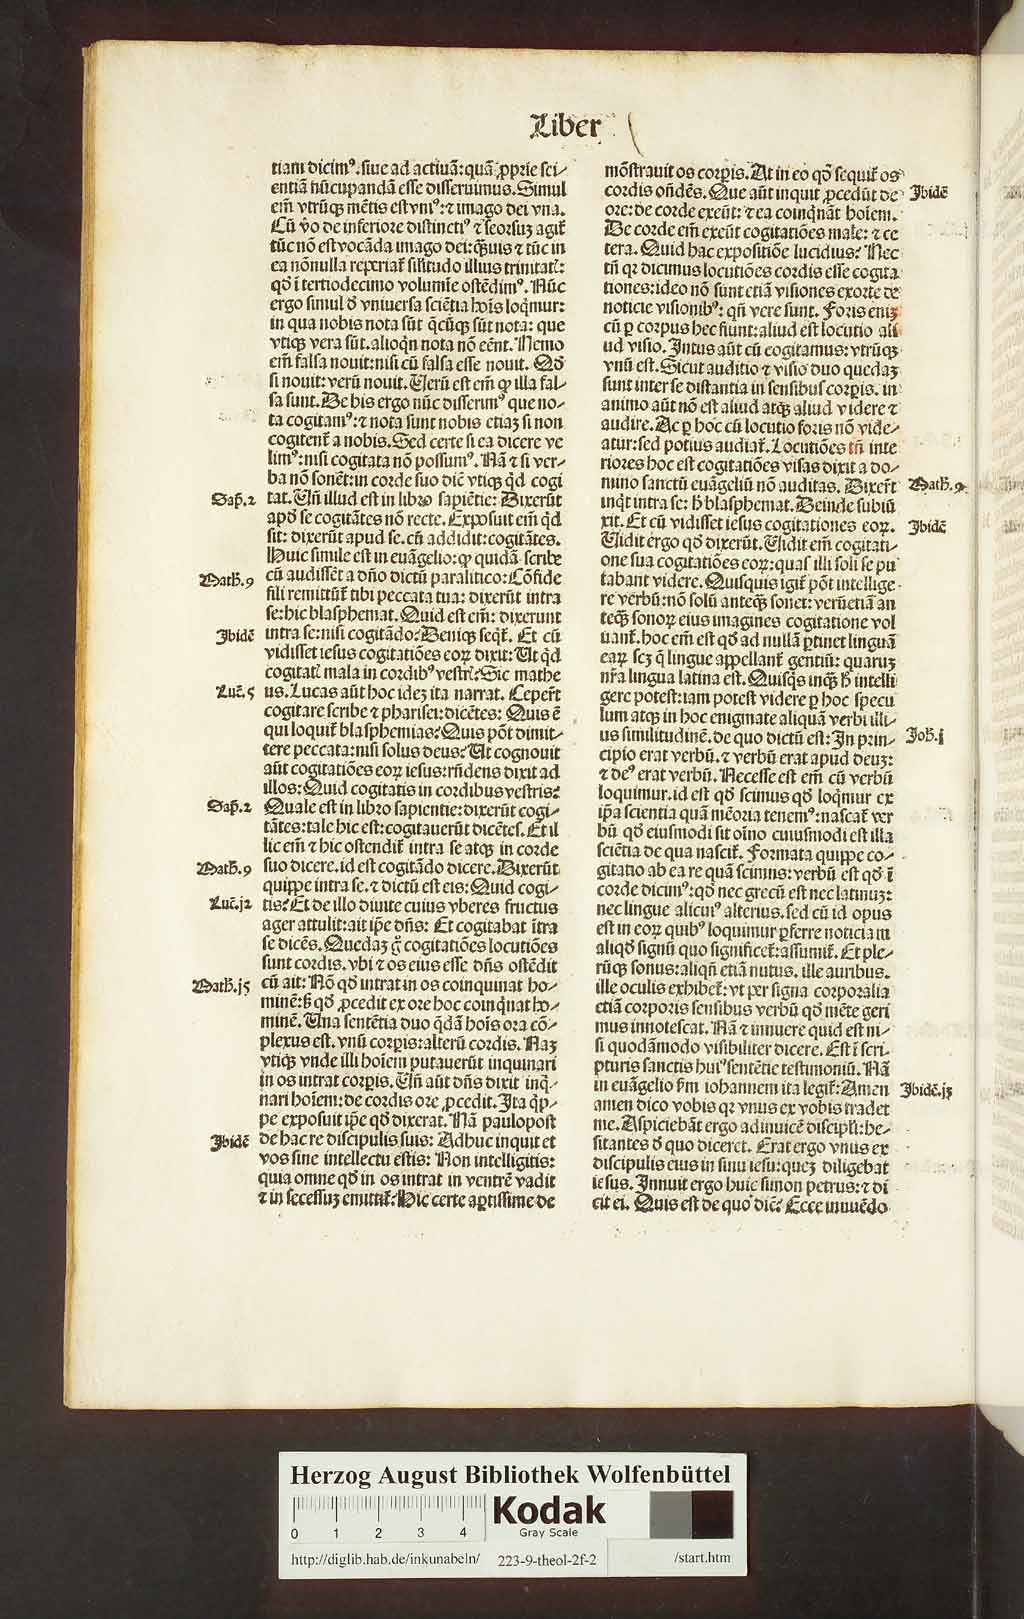 Liber
tiam dicimꝰ. siue ad actiuā: quā ꝓprie sci-
entiā nūcupandā esse disseruimus. Simul
em̄ vtrūqꝫ mētis est vniꝰ: ⁊ imago dei vna.
Cū ꝟo de inferiore distinctiꝰ ⁊ seorsuꝫ agit̄
tūc nō est vocāda imago dei: q̄uis ⁊ tūc in
ea nōnulla reperiat̄ silitudo illius trinitatꝭ:
qd̄ ī tertiodecimo volumīe ostēdimꝰ. Nūc
ergo simul d̄ vniuersa sciētia hoīs loq̄mur:
in qua nobis nota sūt q̄cūqꝫ sūt nota: que
vtiqꝫ vera sūt. alioqn̄ nota nō eēnt. Nemo
em̄ falsa nouit: nisi cū falsa esse nouit. Qd̄
si nouit: verū nouit. Verū est em̄ ꝙ illa fal-
sa sunt. De his ergo nūc disserimꝰ que no-
ta cogitamꝰ: ⁊ nota sunt nobis etiaꝫ si non
cogitent̄ a nobis. Sed certe si ea dicere ve
limꝰ: nisi cogitata nō possumꝰ. Nā ⁊ si ver-
ba nō sonēt: in corde suo dic̄ vtiqꝫ qd̄ cogi
Sap̄. 2 tat. Un̄ illud est in libro sapiētie: Dixerūt
apd̄ se cogitātes nō recte. Exposuit em̄ qd̄
sit: dixerūt apud se. cū addidit: cogitātes.
Huic simile est in euāgelio: ꝙ quidā scribe
Math̄. 9 cū audissēt a dn̄o dictū paralitico: Cōfide
fili remittūt̄ tibi peccata tua: dixerūt intra
se: hic blasphemat. Quid est em̄: dixerunt
Ibidē intra se: nisi cogitādo? Deniqꝫ seqt̄. Et cū
vidisset iesus cogitatiōes eoꝝ dixit: Ut qd̄
cogitatꝭ mala in cordibꝰ vestrꝭ? Sic mathe
Luc̄. 5 us. Lucas aūt hoc ideꝫ ita narrat. Ceper̄t
cogitare scribe ⁊ pharisei: dicētes: Quis ē
qui loquit̄ blasphemias? Quis pōt dimit-
tere peccata: nisi solus deus? Ut cognouit
aūt cogitatiōes eoꝝ iesus: rn̄dens dixit ad
illos: Quid cogitatis in cordibus vestris?
Sap̄. 2 Quale est in libro sapientie: dixerūt cogi-
tātes: tale hic est: cogitauerūt dicētes. Et il
lic em̄ ⁊ hic ostendit̄ intra se atqꝫ in corde
Math̄. 9 suo dicere. id est cogitādo dicere. Dixerūt
quippe intra se. ⁊ dictū est eis: Quid cogi-
Luc̄. j2 tis? Et de illo diuite cuius vberes fructus
ager attulit: ait ip̄e dn̄s: Et cogitabat ītra
se dicēs. Quedaꝫ gͦ cogitatiōes locutiōes
sunt cordis. vbi ⁊ os eius esse dn̄s ostēdit
Math̄. j5 cū ait: Nō qd̄ intrat in os coinquinat ho-
minē: s̄ qd̄ ꝓcedit ex ore hoc coinq̄nat ho-
minē. Una sentētia duo q̄dā hoīs ora cō-
plexus est. vnū corꝑis: alterū cordis. Naꝫ
vtiqꝫ vnde illi hoīem putauerūt inquinari
in os intrat corꝑis. Un̄ aūt dn̄s dixit inq̄-
nari hoīem: de cordis ore ꝓcedit. Ita q̄p-
pe exposuit ip̄e qd̄ dixerat. Nā paulopost
Ibidē de hac re discipulis suis: Adhuc inquit et
vos sine intellectu estis: Non intelligitis:
quia omne qd̄ in os intrat in ventrē vadit
⁊ in secessuꝫ emittit̄? Hic certe aꝑtissime de
mōstrauit os corꝑis. At in eo qd̄ sequit̄ os
cordis on̄dēs. Que aūt inquit ꝓcedūt de Ibidē
ore: de corde exeūt: ⁊ ea coinq̄nāt hoīem.
De corde em̄ exeūt cogitatiōes male: ⁊ ce
tera. Quid hac expositiōe lucidius? Nec
tn̄ qꝛ dicimus locutiōes cordis esse cogita
tiones: ideo nō sunt etiā visiones exorte de
noticie visionibꝰ: qn̄ vere sunt. Foris eniꝫ
cū ꝑ corpus hec fiunt: aliud est locutio ali
ud visio. Intus aūt cū cogitamus: vtrūqꝫ
vnū est. Sicut auditio ⁊ visio duo quedaꝫ
sunt inter se distantia in sensibus corꝑis. in
animo aūt nō est aliud atqꝫ aliud videre ⁊
audire. Ac ꝑ hoc cū locutio foris nō vide-
atur: sed potius audiat̄. Locutiōes tn̄ inte
riores hoc est cogitatiōes visas dixit a do-
mino sanctū euāgeliū nō auditas. Dixer̄t Math̄. 9
inqͥt intra se: hͦ blasphemat. Deinde subiū
xit. Et cū vidisset iesus cogitationes eoꝝ. Ibidē
Uidit ergo qd̄ dixerūt. Uidit em̄ cogitati-
one sua cogitatiōes eoꝝ: quas illi soli se pu
tabant videre. Quisquis igit̄ pōt intellige-
re verbū: nō solū anteqꝫ sonet: verūetiā an
teqꝫ sonoꝝ eius imagines cogitatione vol
uant̄. hoc em̄ est qd̄ ad nullā ꝑtinet linguā
eaꝝ scꝫ q̄ lingue appellant̄ gentiū: quaruꝫ
nr̄a lingua latina est. Quisqͥs inqꝫ hͦ intelli
gere potest: iam potest videre ꝑ hoc specu
lum atqꝫ in hoc enigmate aliquā verbi illi-
us similitudinē. de quo dictū est: In prin- Joh̄. j
cipio erat verbū. ⁊ verbū erat apud deuꝫ:
⁊ deꝰ erat verbū. Necesse est em̄ cū verbū
loquimur. id est qd̄ scimus qd̄ loq̄mur ex
ip̄a scientia quā mēoria tenemꝰ: nascat̄ ver
bū qd̄ eiusmodi sit oīno cuiusmodi est illa
sciētia de qua nascit̄. Formata quippe co-
gitatio ab ea re quā scimus: verbū est qd̄ ī
corde dicimꝰ: qd̄ nec grecū est nec latinuꝫ:
nec lingue alicuiꝰ alterius. sed cū id opus
est in eoꝝ quibꝰ loquimur ꝑferre noticiam
aliqd̄ signū quo significet̄: assumit̄. Et ple-
rūqꝫ sonus: aliqn̄ etiā nutus. ille auribus.
ille oculis exhibet̄: vt per signa corporalia
etiā corporis sensibus verbū qd̄ mēte geri
mus innotescat. Nā ⁊ innuere quid est ni-
si quodāmodo visibiliter dicere. Est ī scri-
pturis sanctis huiꝰ sentētie testimoniū. Nā
in euāgelio ẜm iohannem ita legit̄: Amen Ibidē. jꝫ
amen dico vobis qꝛ vnus ex vobis tradet
me. Aspiciebāt ergo adinuicē discipłi: he-
sitantes d̄ quo diceret. Erat ergo vnus ex
discipulis eius in sinu iesu: queꝫ diligebat
iesus. Innuit ergo huic simon petrus: ⁊ di
cit ei. Quis est de quo dic̄? Ecce innuēdo
Herzog August Bibliothek Wolfenbüttel
0 1 2 3 4
Kodak
Gray Scale
http://diglib.hab.de/inkunabeln/ 223-9-theol-2f-2 /start.htm